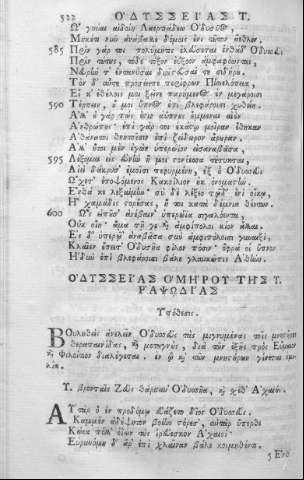 522 ΟΔΥΣΣΕΙΑΣ Τ.
Ὦ γύναι αἰδοίη Λαερτιάδεω Ὀδυσῆος,
Μηκέτι νῦν ἀνάβαλλε δόμοις ἔνι τοῦτον ἄεθλον.
585 Πρὶν γάρ τοι πολύμητις ἐλεύσεται ἐνθάδ' Ὀδυσσεὺς,
Πρὶν τούτους, τόδε τόξον ἐύξοον ἀμφαφόωντας,
Νευρήν τ' ἐντανύσαι διοϊστεῦσαί τε σιδήρου.
Τὸν δ' αὖτε προσέειπε περίφρων Πηνελόπεια,
Εἴ κ' ἐθέλοις μοι ξεῖνε παρήμενος ἐν μεγάροισι
590 Τέρπειν, οὔ μοι ὕπνος ἐπὶ βλεφάροισι χυθείη.
Ἀλλ' οὐ γάρ πως ἔστιν ἀΰπνους ἔμμεναι αἰεὶ
Ἀνθρώπους· ἐπὶ γάρ τοι ἑκάστῳ μοῖραν ἔθηκαν
Ἀθάνατοι θνητοῖσιν ἐπὶ ζείδωρον ἄρουραν.
Ἀλλ' ἤτοι μὲν ἐγὼν ὑπερώϊον εἰσαναβᾶσα,
595 Λέξομαι εἰς εὐνὴν ἥ μοι στονόεσσα τέτυκται,
Αἰεὶ δάκρυσ' ἐμοῖσι πεφυρμένη, ἐξ οὗ Ὀδυσσεὺς
Ὤχετ' ἐποψόμενος Κακοΐλιον οὐκ ὀνομαστήν.
Ἔνθα κε λεξαίμην· σὺ δὲ λέξεο τῷδ' ἐνὶ οἴκῳ,
Ἢ χαμάδις στορέσας, ἤ τοι κατὰ δέμνια θέντων.
600 Ὣς εἰποῦσ' ἀνέβαιν' ὑπερώϊα σιγαλόεντα,
Οὐκ οἴη, ἅμα τῇ γε καὶ ἀμφίπολοι κίον ἄλλαι.
Ἐς δ' ὑπερῷ' ἀναβᾶσα σὺν ἀμφιπόλοισι γυναιξὶ,
Κλαῖεν ἔπειτ' Ὀδυσῆα φίλον πόσιν· ὄφρά οἱ ὕπνον
Ἡδὺν ἐπὶ βλεφάροισι βάλε γλαυκῶπις Ἀθήνη.
ΟΔΥΣΣΕΙΑΣ ΟΜΗΡΟΥ ΤΗΣ Υ.
ΡΑΨΩΔΙΑΣ
Ὑπόθεσις.
Βουλεύεται ἀνελεῖν Ὀδυσσεὺς τὰς μιγνυμένας τοῖς μνηστῆρσι
θεραπαινίδας, καὶ μετανοεῖ, διὰ τῶν ἑξῆς πρὸς Εὔμαιον
καὶ Φιλοίτιον διαλέγεται. ἐν ᾧ καὶ τῶν μνηστήρων γίνεται
Υ. βροντῇσι Ζεὺς θάρσυν' Ὀδυσσῆα, καὶ σχέδ' Ἀχαιοί.
Αὐτὰρ ὁ ἐν προδόμῳ εὐνάζετο δῖος Ὀδυσσεύς.
Καμμὲν ἀδέψητον βοέην στόρεσ', αὐτὰρ ὕπερθε
Κώεα πόλλ' ὀΐων τοὺς ἱρεύεσκον Ἀχαιοί·
Εὐρυνόμη δ' ἄρ' ἐπὶ χλαῖναν βάλε κοιμηθέντι.